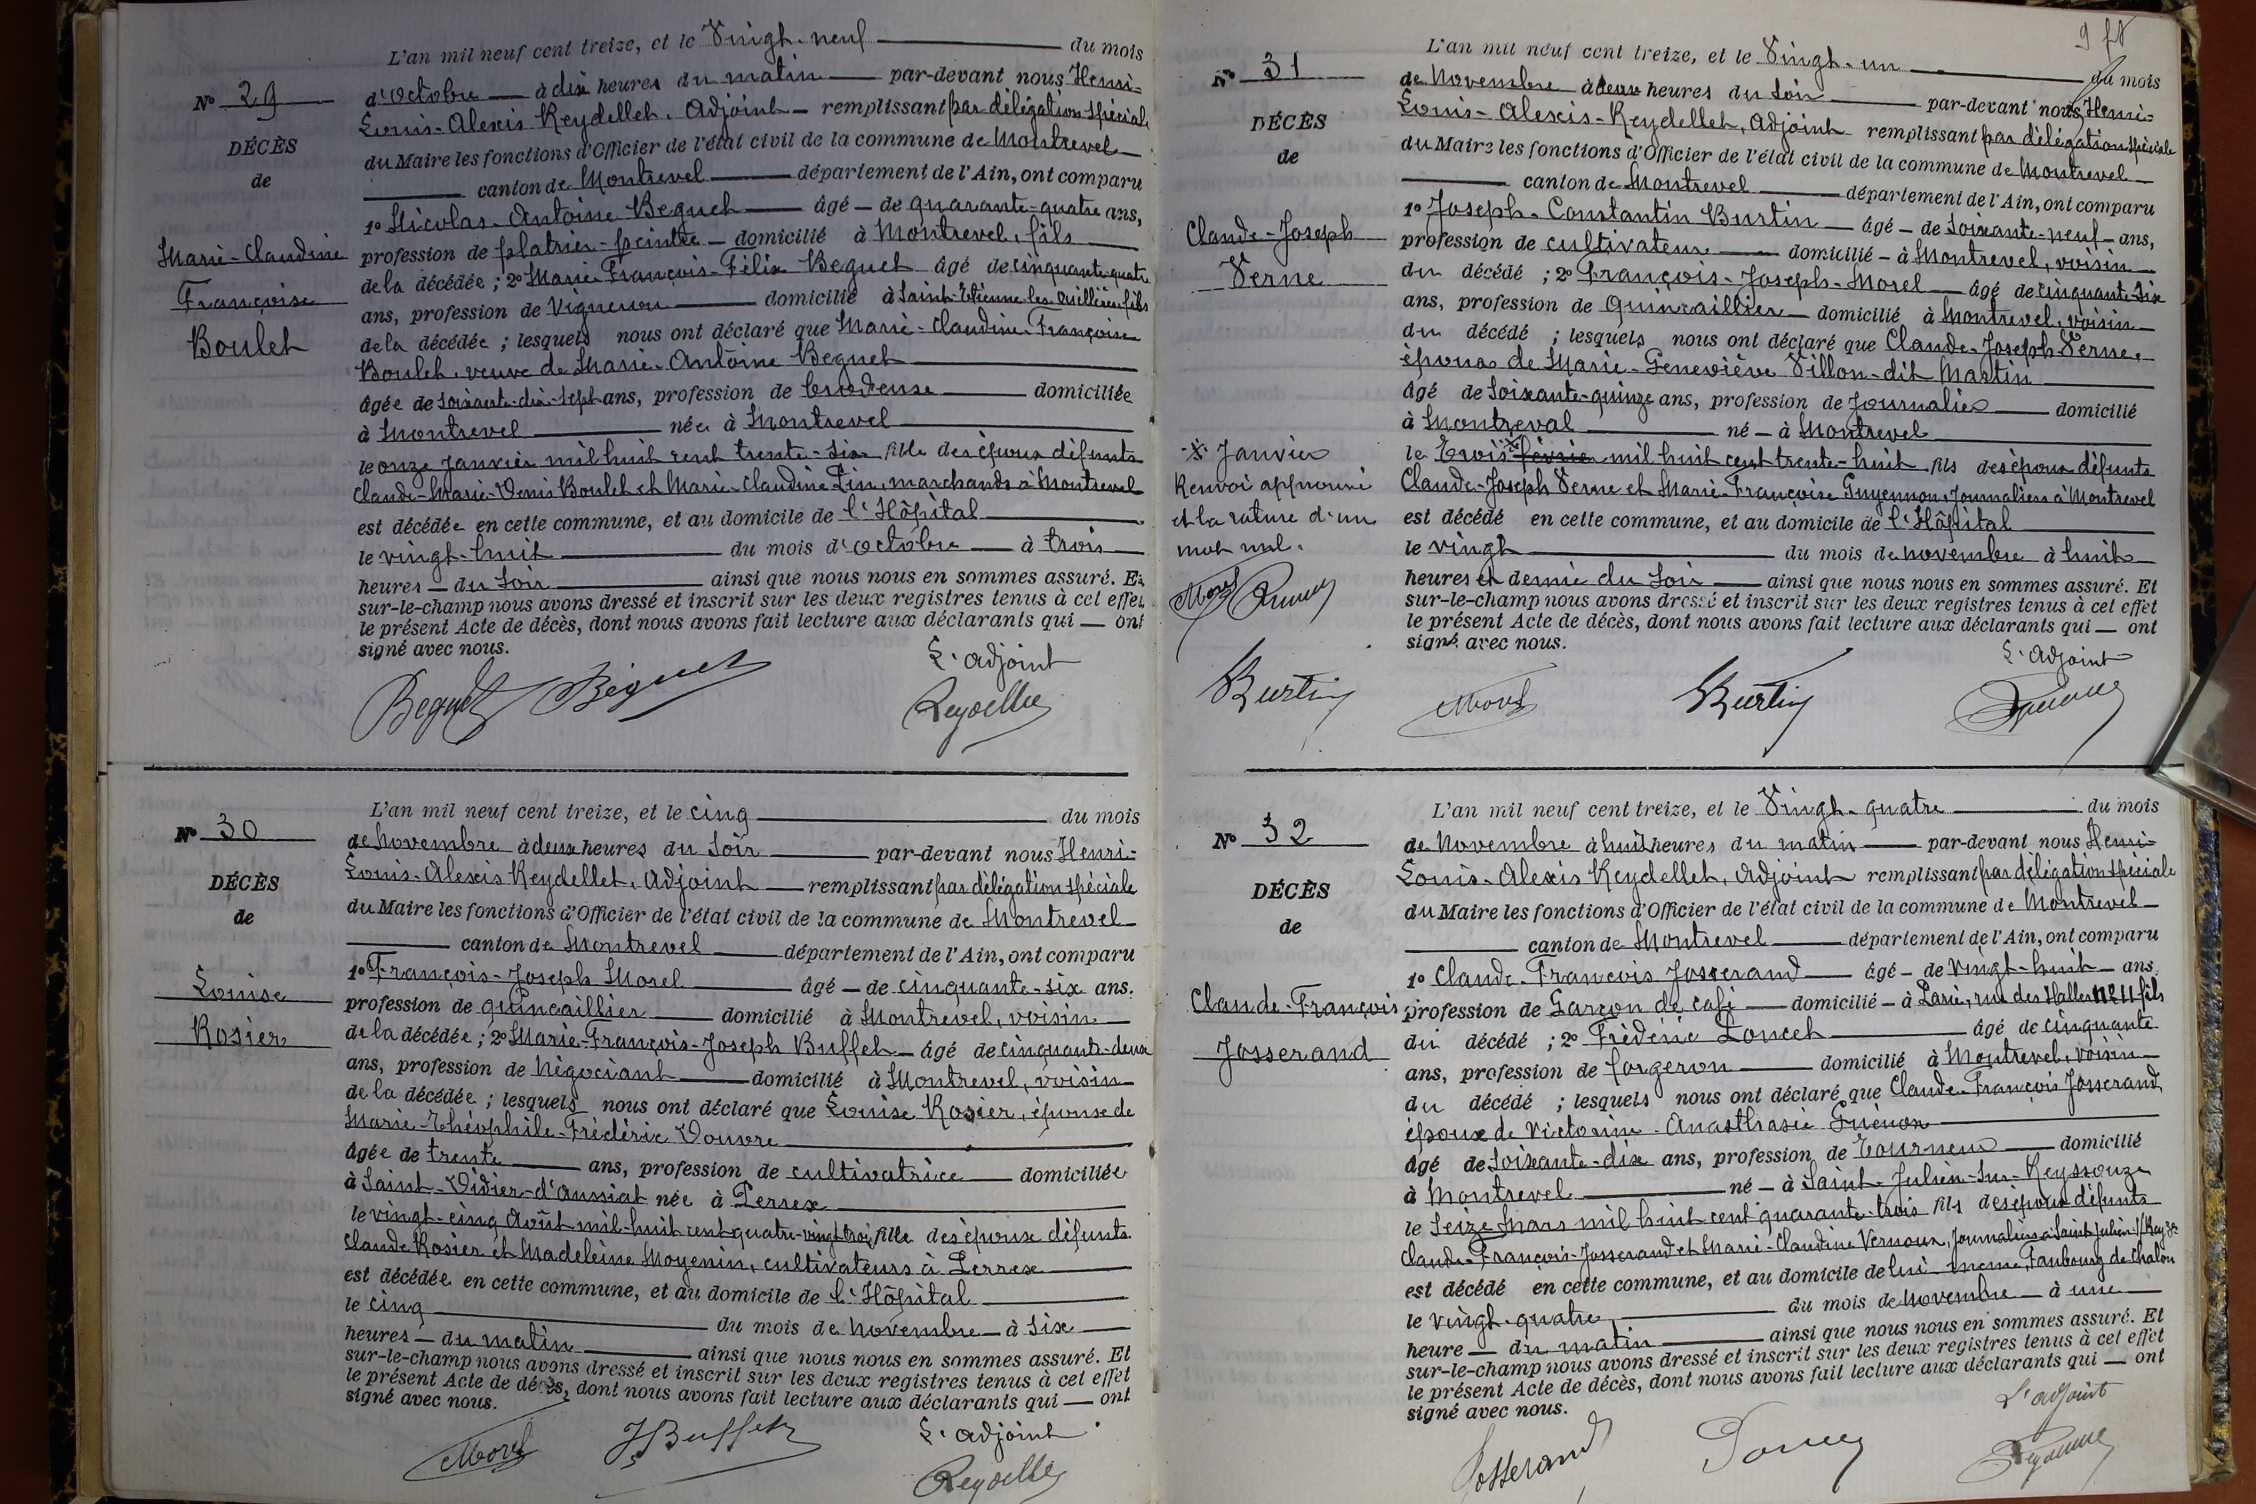 L'an mil neuf cent treize, et le Vingt-neuf du mois
N° 29
d'Octobre à dix heures du matin par-devant nous Henri-
Louis-Alexis Reydellet, Adjoint remplissant par délégation spéciale
DÉCÈS
du Maire les fonctions d'Officier de l'état civil de la commune de Montrevel
de
canton de Montrevel département de l'Ain, ont comparu
1° Nicolas-Antoine Beguet âgé de quarante-quatre ans,
Marie-Claudine
profession de platrier-peintre domicilié à Montrevel, fils
Françoise
de la décédée ; 2° Marie François-Félix Beguet âgé de cinquante-quatre
ans, profession de Vigneron domicilié à Saint-Etienne les Ouillières fils
Boulet
de la décédée ; lesquels nous ont déclaré que Marie-Claudine Françoise
Boulet, veuve de Marie-Antoine Beguet
âgée de soixante-dix-sept ans, profession de brodeuse domiciliée
à Montrevel née à Montrevel
le onze Janvier mil huit cent trente-six fille des époux défunts
Claude-Marie-Denis Boulet et Marie-Claudine Pin, marchands à Montrevel
est décédée en cette commune, et au domicile de l'Hôpital
le vingt-huit du mois d'octobre à trois
heures du soir ainsi que nous nous en sommes assuré. Et
sur-le-champ nous avons dressé et inscrit sur les deux registres tenus à cet effet
le présent Acte de décès, dont nous avons fait lecture aux déclarants qui ont
signé avec nous.
L'adjoint
Beguet Béguet Reydellet
L'an mil neuf cent treize, et le cinq du mois
N° 30
de Novembre à deux heures du soir par-devant nous Henri-
Louis-Alexis Reydellet, Adjoint remplissant par délégation spéciale
DÉCÈS
du Maire les fonctions d'Officier de l'état civil de la commune de Montrevel
de
canton de Montrevel département de l'Ain, ont comparu
1° François-Joseph Morel âgé de cinquante-six ans,
Louise
profession de quincaillier domicilié à Montrevel, voisin
Rosier
de la décédée ; 2° Marie-François-Joseph Buffet âgé de cinquante-deux
ans, profession de négociant domicilié à Montrevel, voisin
de la décédée ; lesquels nous ont déclaré que Louise Rosier, épouse de
Marie-Théophile-Frédéric Vouvre
âgée de trente ans, profession de cultivatrice domiciliée
à Saint-Didier-d'Aussiat née à Perrex
le vingt-cinq Août mil-huit cent quatre-vingt trois fille des époux défunts
Claude Rosier et Madeleine Moyenin, cultivateurs à Perrex
est décédée en cette commune, et au domicile de l'Hôpital
le cinq du mois de novembre à six
heures du matin ainsi que nous nous en sommes assuré. Et
sur-le-champ nous avons dressé et inscrit sur les deux registres tenus à cet effet
le présent Acte de décès, dont nous avons fait lecture aux déclarants qui ont
signé avec nous.
L'adjoint
Morel JBuffet Reydellet
L'an mil neuf cent treize, et le Vingt-un du mois
N° 31
de Novembre à deux heures du soir par-devant nous Henri-
Louis-Alexis-Reydellet, Adjoint remplissant par délégation spéciale
DÉCÈS
du Maire les fonctions d'Officier de l'état civil de la commune de Montrevel
de
canton de Montrevel département de l'Ain, ont comparu
1° Joseph-Constantin Burtin âgé de soixante-neuf ans,
Claude-Joseph
profession de cultivateur domicilié à Montrevel, voisin
Verne
du décédé ; 2° François-Joseph-Morel âgé de cinquante-six
ans, profession de Quincaillier domicilié à Montrevel, voisin
du décédé ; lesquels nous ont déclaré que Claude-Joseph Verne,
époux de Marie-Geneviève Villon-dit Martin
âgé de soixante-quinze ans, profession de Journalier domicilié
à Montreval né à Montrevel
le Trois février mil huit cent trente-huit fils des époux défunts
Claude-Joseph Verne et Marie-Françoise Guyennon, Journaliers à Montrevel
est décédé en cette commune, et au domicile de l'Hôpital
le vingt du mois de novembre à huit
heures et demie du soir ainsi que nous nous en sommes assuré. Et
sur-le-champ nous avons dressé et inscrit sur les deux registres tenus à cet effet
le présent Acte de décès, dont nous avons fait lecture aux déclarants qui ont
signé avec nous.
Janvier
Renvoi approuvé
et la rature d'un
mot nul.
Morel
Burtin
L'adjoint
Morel Burtin
L'an mil neuf cent treize, et le Vingt-quatre du mois
N° 32
de Novembre à huit heures du matin par-devant nous Henri-
Louis-Alexis Reydellet, Adjoint remplissant par délégation spéciale
DÉCÈS
du Maire les fonctions d'Officier de l'état civil de la commune de Montrevel
de
canton de Montrevel département de l'Ain, ont comparu
1° Claude-François Josserand âgé de vingt-huit ans,
Claude-François
profession de Garçon de café domicilié à Paris, rue des Halles N° 11 fils
Josserand
du décédé ; 2° Frédéric Poncet âgé de cinquante
ans, profession de forgeron domicilié à Montrevel, voisin
du décédé ; lesquels nous ont déclaré que Claude-François Josserand,
époux de Victorine-Anasthasie Guénon
âgé de soixante-dix ans, profession de Tourneur domicilié
à Montrevel né à Saint-Julien-sur-Reyssouze
le seize Mars mil huit cent quarante-trois fils des époux défunts
Claude-François-Josserand et Marie-Claudine Vernoux, Journaliers à Saint Julien
est décédé en cette commune, et au domicile de lui même, Faubourg de Chalon
le vingt-quatre du mois de Novembre à une
heure du matin ainsi que nous nous en sommes assuré. Et
sur-le-champ nous avons dressé et inscrit sur les deux registres tenus à cet effet
le présent Acte de décès, dont nous avons fait lecture aux déclarants qui ont
signé avec nous.
L'adjoint
Josserand Poncet